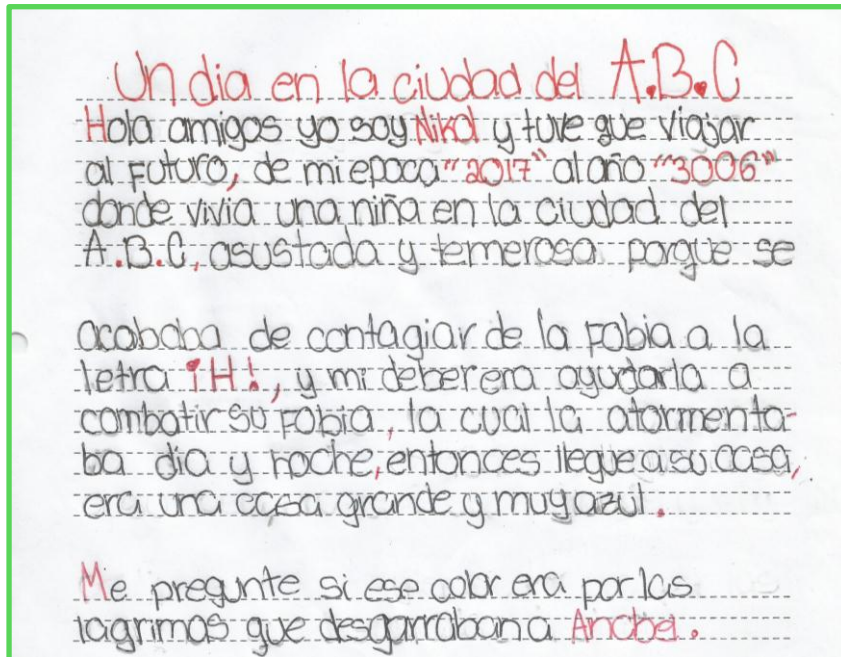 Un dia en la ciudad del A.B.C
Hola amigos yo soy Nikol y tuve que viajar
al futuro, de mi epoca "2017" al año "3006"
donde vivia una niña en la ciudad del
A.B.C, asustada y temerosa porque se
acababa de contagiar de la fobia a la
letra ¡H!, y mi deber era ayudarla a
combatir su fobia, la cual la atormenta-
ba dia y noche, entonces llegue a su casa,
era una casa grande y muy azul.
Me pregunte si ese color era por las
lagrimas que desgarraban a Anabel.